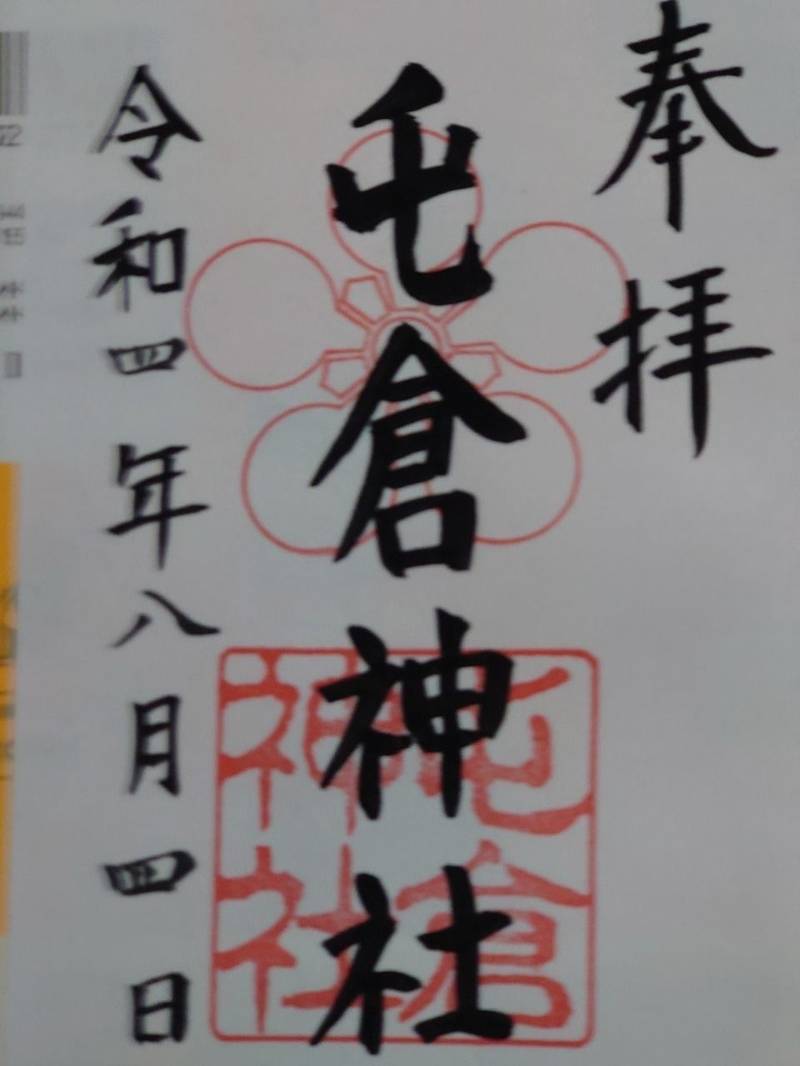 奉拝
屯倉神社
令和四年八月四日
屯倉神社